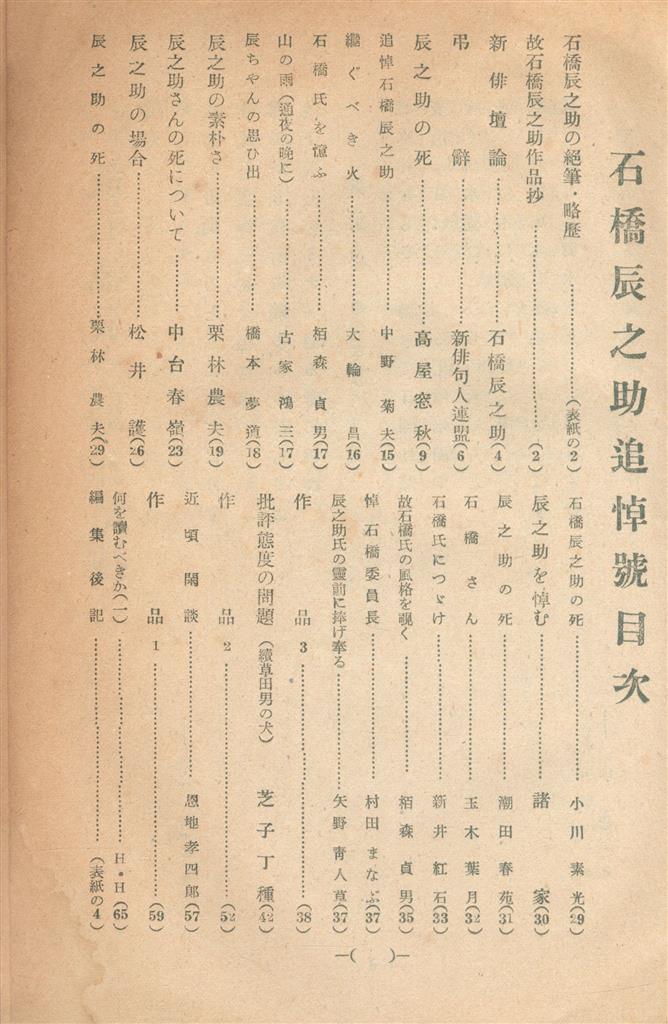 石橋辰之助追悼號目次
石橋辰之助の絕筆・略歷…………(表紙の2)
故石橋辰之助作品抄…………(2)
新俳壇論…………石橋辰之助(4)
弔辭…………新俳句人連盟(6)
辰之助の死…………高屋窓秋(9)
追悼石橋辰之助…………中野菊夫(15)
繼ぐべき火…………大輪昌(16)
石橋氏を憶ふ…………栢森貞男(17)
山の雨(通夜の晩に)…………古家鴻三(17)
辰ちやんの思ひ出…………橋本夢道(18)
辰之助の素朴さ…………栗林農夫(19)
辰之助さんの死について…………中台春嶺(23)
辰之助の場合…………松井護(26)
辰之助の死…………栗林農夫(29)
石橋辰之助の死…………小川素光(29)
辰之助を悼む…………諸家(30)
辰之助の死…………潮田春苑(31)
石橋さん…………玉木葉月(32)
石橋氏につゞけ…………新井紅石(33)
故石橋氏の風格を覗く…………栢森貞男(35)
悼石橋委員長…………村田まなぶ(37)
辰之助氏の靈前に捧げ奉る…………矢野靑人草(37)
作品3…………(38)
批評態度の問題(續草田男の犬)芝子丁種(42)
作品2…………(52)
近頃閑談…………恩地孝四郎(57)
作品1…………(59)
何を讀むべきか(一)…………H・H(65)
編集後記…………(表紙の4)
—( )—